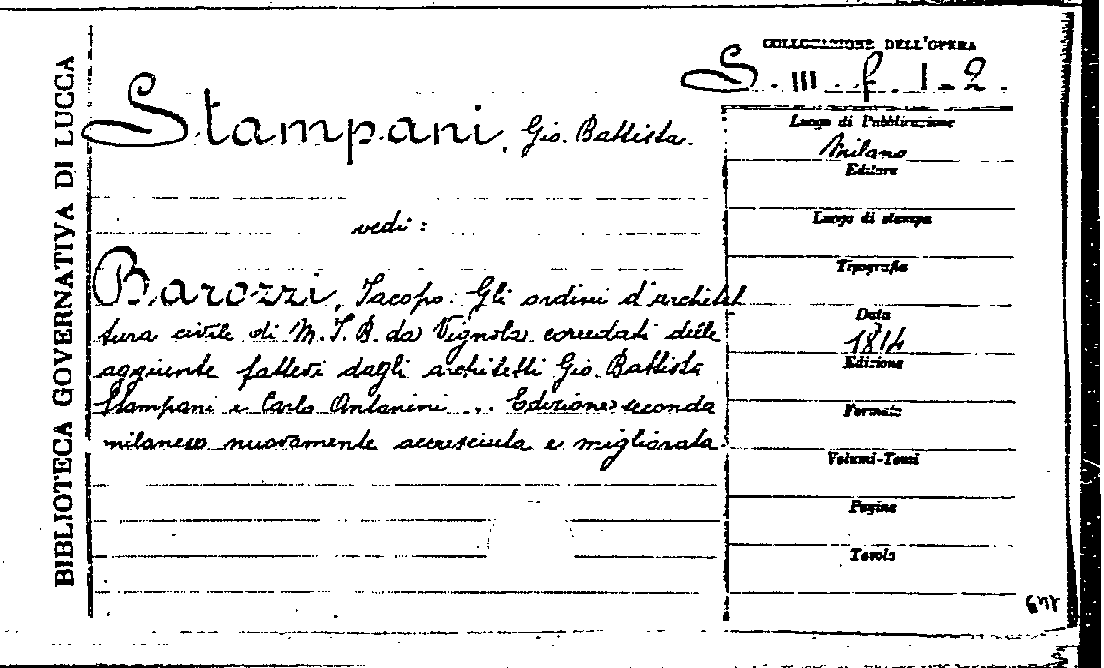 BIBLIOTECA GOVERNATIVA DI LUCCA
COLLOCAZIONE DELL'OPERA
S. III. f. 1-2.
Stampani, Gio. Battista.
vedi:
Barozzi, Jacopo. Gli ordini d'architet
tura civile di M. J. B. da Vignola corredati delle
aggiunte fattevi dagli architetti Gio. Battista
Stampani e Carlo Antonini ... Edizione seconda
milanese nuovamente accresciuta e migliorata.
Luogo di Pubblicazione
Milano
Editore
Luogo di stampa
Tipografia
Data
1814
Edizione
Formato
Volumi-Tomi
Pagine
Tavole